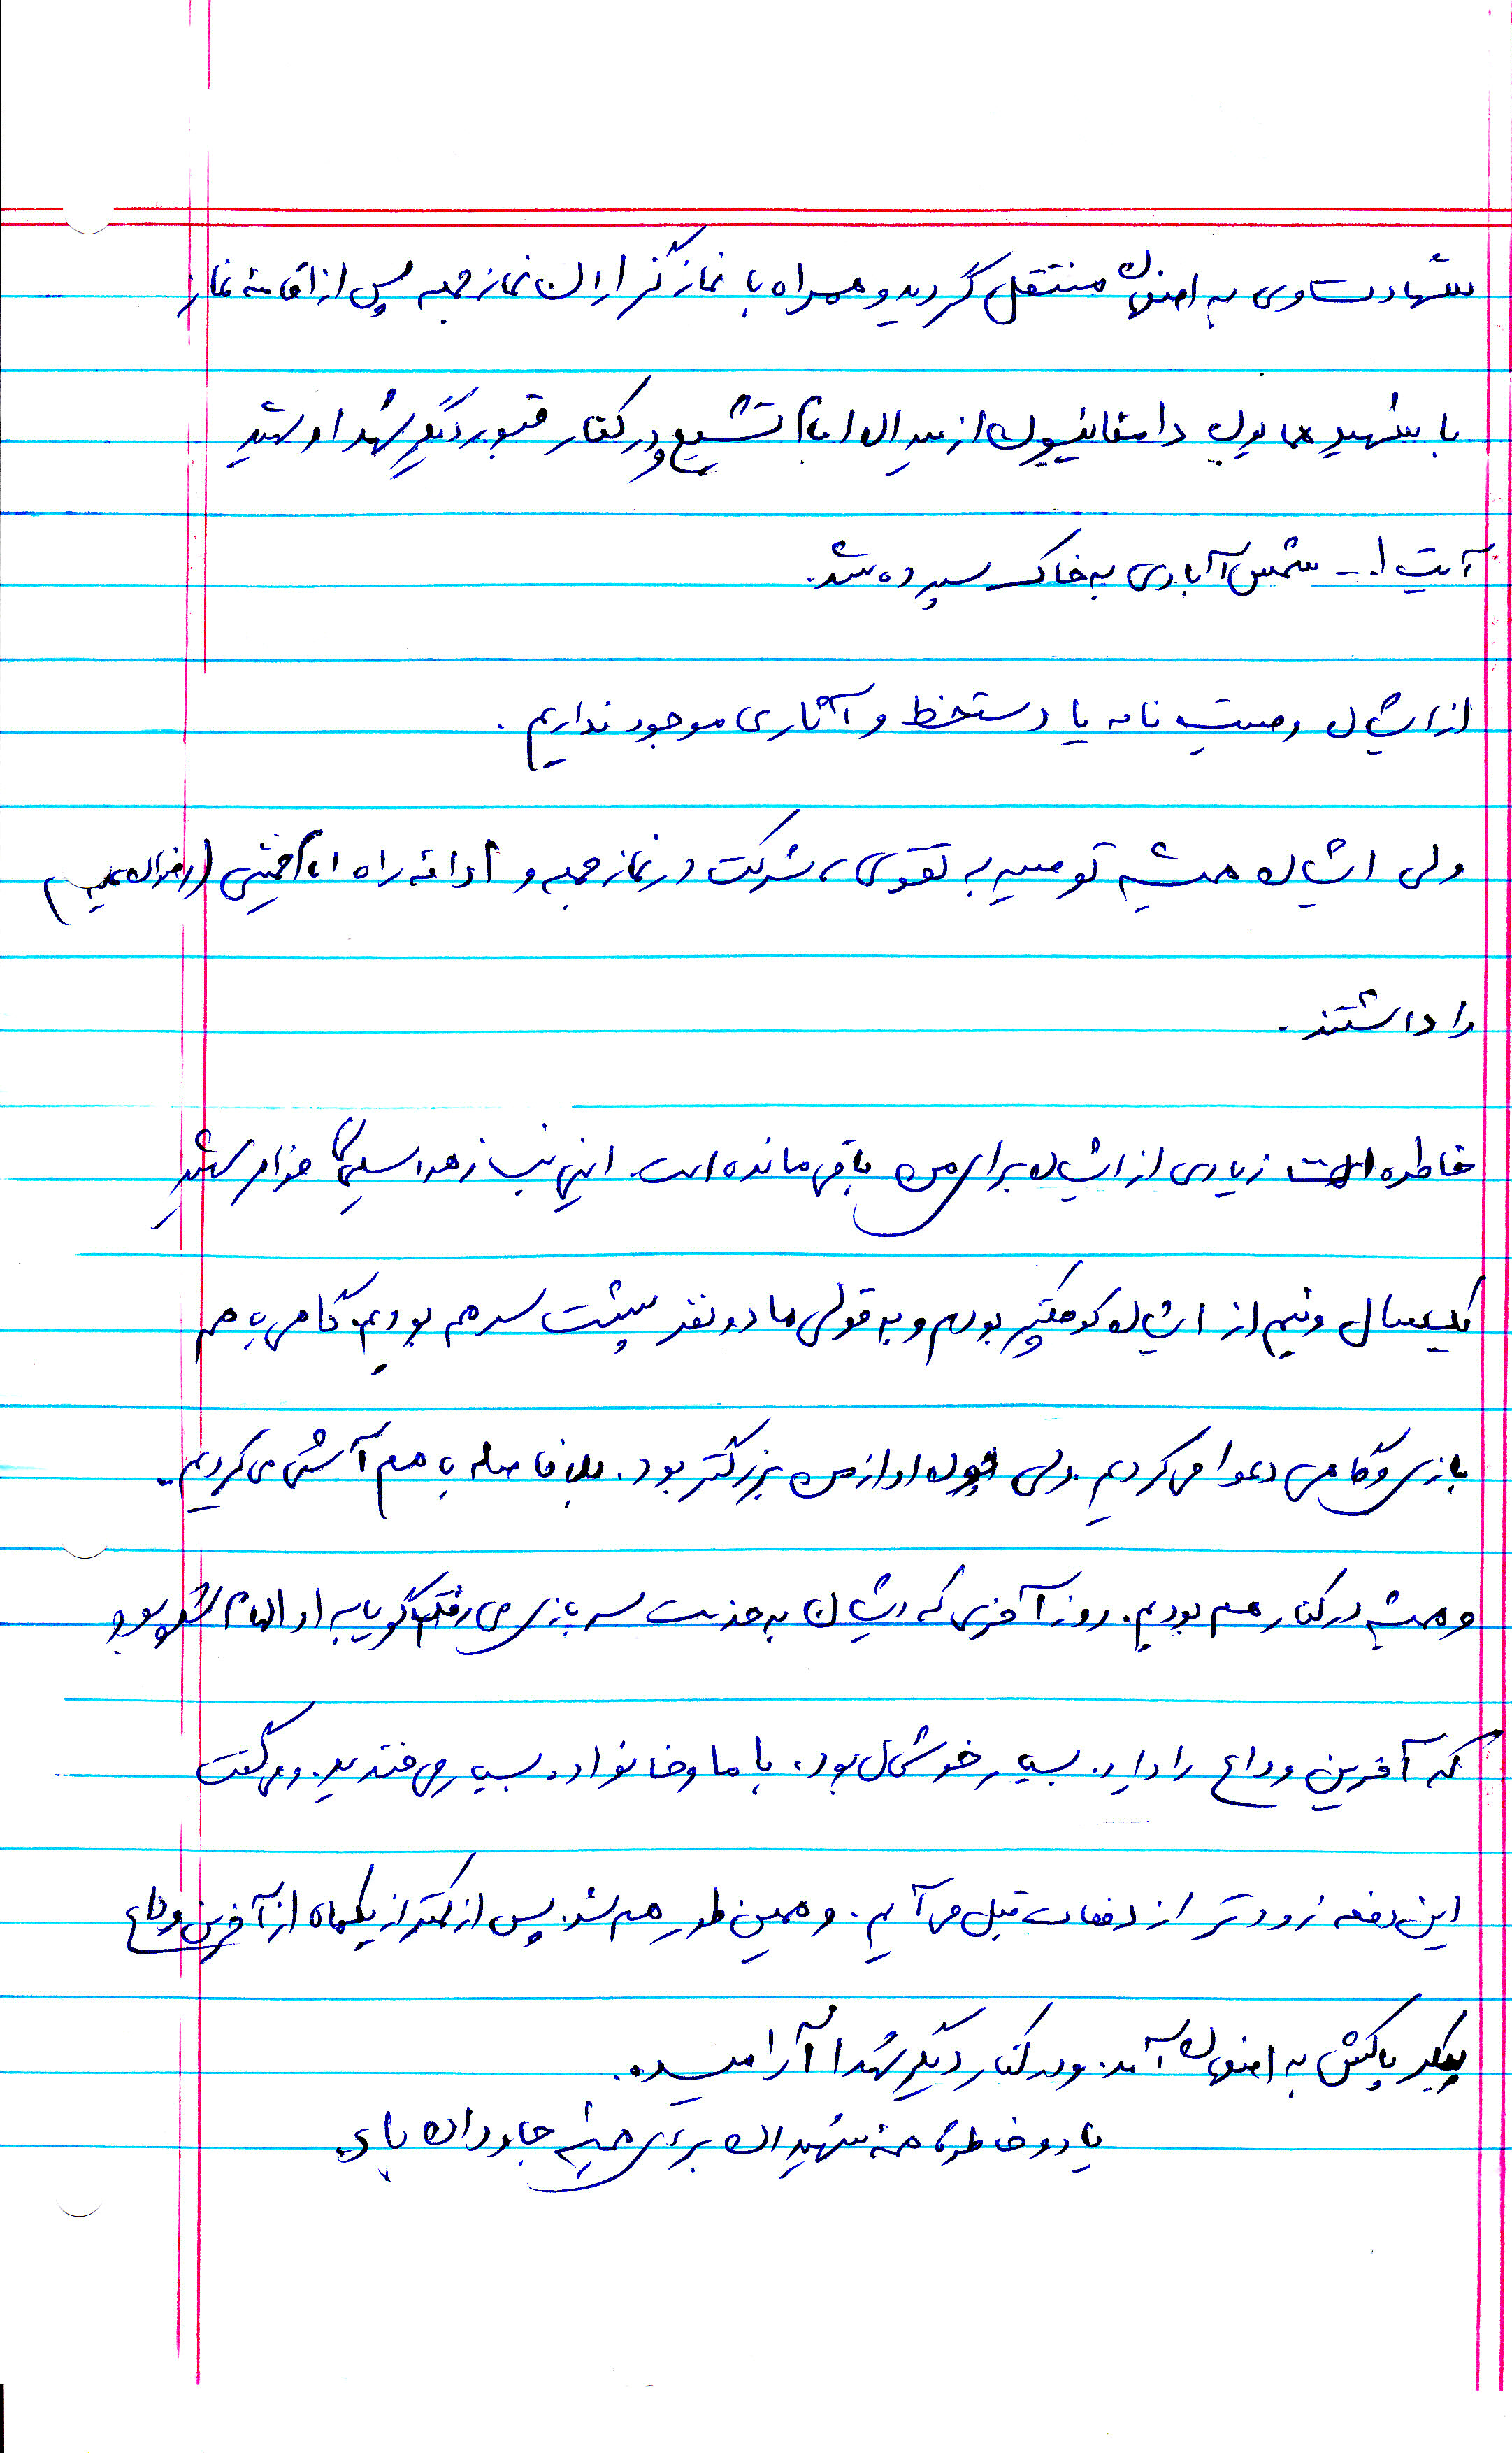 شهادتشان وی به اصفهان منتقل گردید و همراه با نمازگزاران نماز جمعه پس از اقامه نماز
با شهید همایون دامغانیون از میدان امام تشییع و در کنار قبور دیگر شهدا و شهید
آیت ا... شمس آبادی به خاک سپرده شد.
از ایشان وصیت نامه یا دستخط و آثاری موجود نداریم.
ولی ایشان همیشه توصیه به تقوی، شرکت در نماز جمعه و ادامه راه امام خمینی (رضوان علیه)
را داشتند.
خاطره زیادی از ایشان برای من باقی مانده است. اینجانب زهرا خواهر شهید
یکسال و نیم از ایشان کوچکتر بودم و به قولی ما دو نفر پشت سر هم بودیم. گاهی با هم
بازی و گاهی دعوا می کردیم. ولی چون او از من بزرگتر بود. بلافاصله با هم آشتی می کردیم.
و همیشه در کنار هم بودیم. روز آخری که ایشان به خدمت سربازی می رفت گویا به او الهام شده بود
که آخرین وداع را دارد. بسیار خوشحال بود، با ما و خانواده بسیار می خندید. و می گفت
این دفعه زودتر از دفعات قبل می آیم. و همین طور هم شد. پس از کمتر از یکماه از آخرین وداع
پیکر پاکش به اصفهان آمد. و در کنار دیگر شهدا آرامید.
یاد و خاطره همه شهیدان برای همیشه جاودان باد.